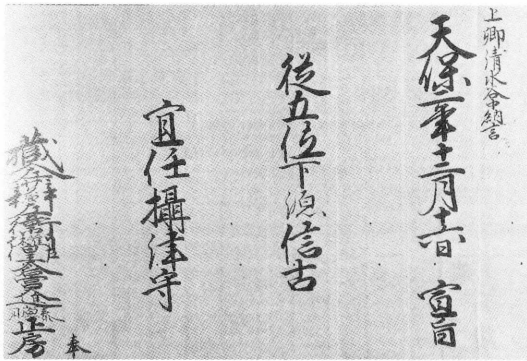 上卿清水谷中納言
天保二年十二月十六日 宣旨
從五位下源信古
宜任攝津守
藏人 正房 奉